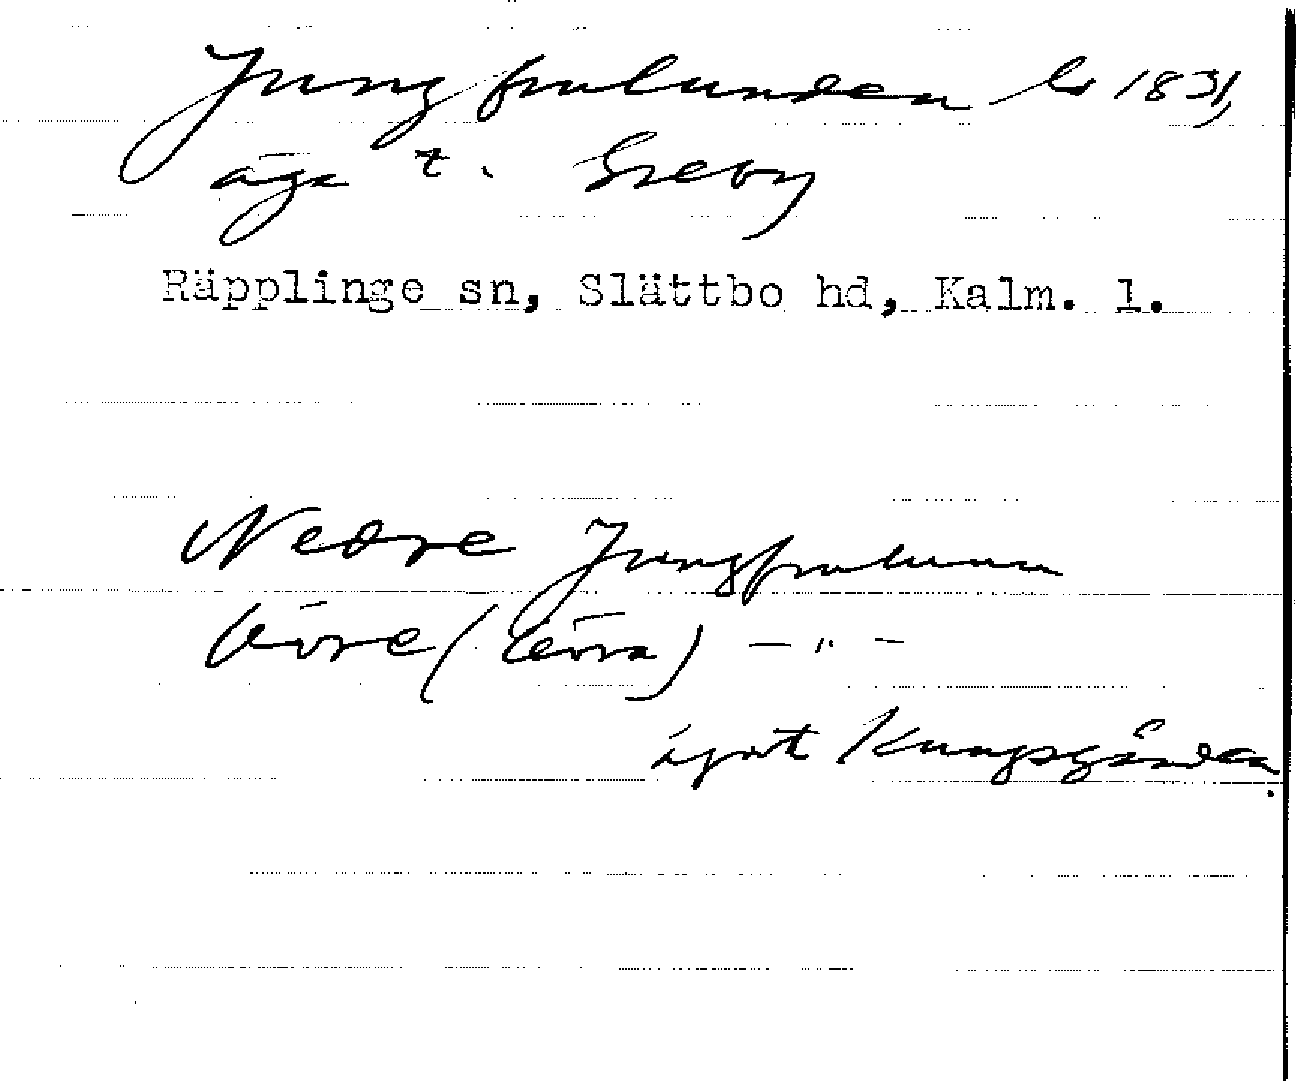 Jungfrulunden ls 1831,
äga t. Greby
Räpplinge sn, Slättbo hd, Kalm. l.
Nedre Jungfrulunden
Övre ( Lövra) — " —
i Kungsgården.